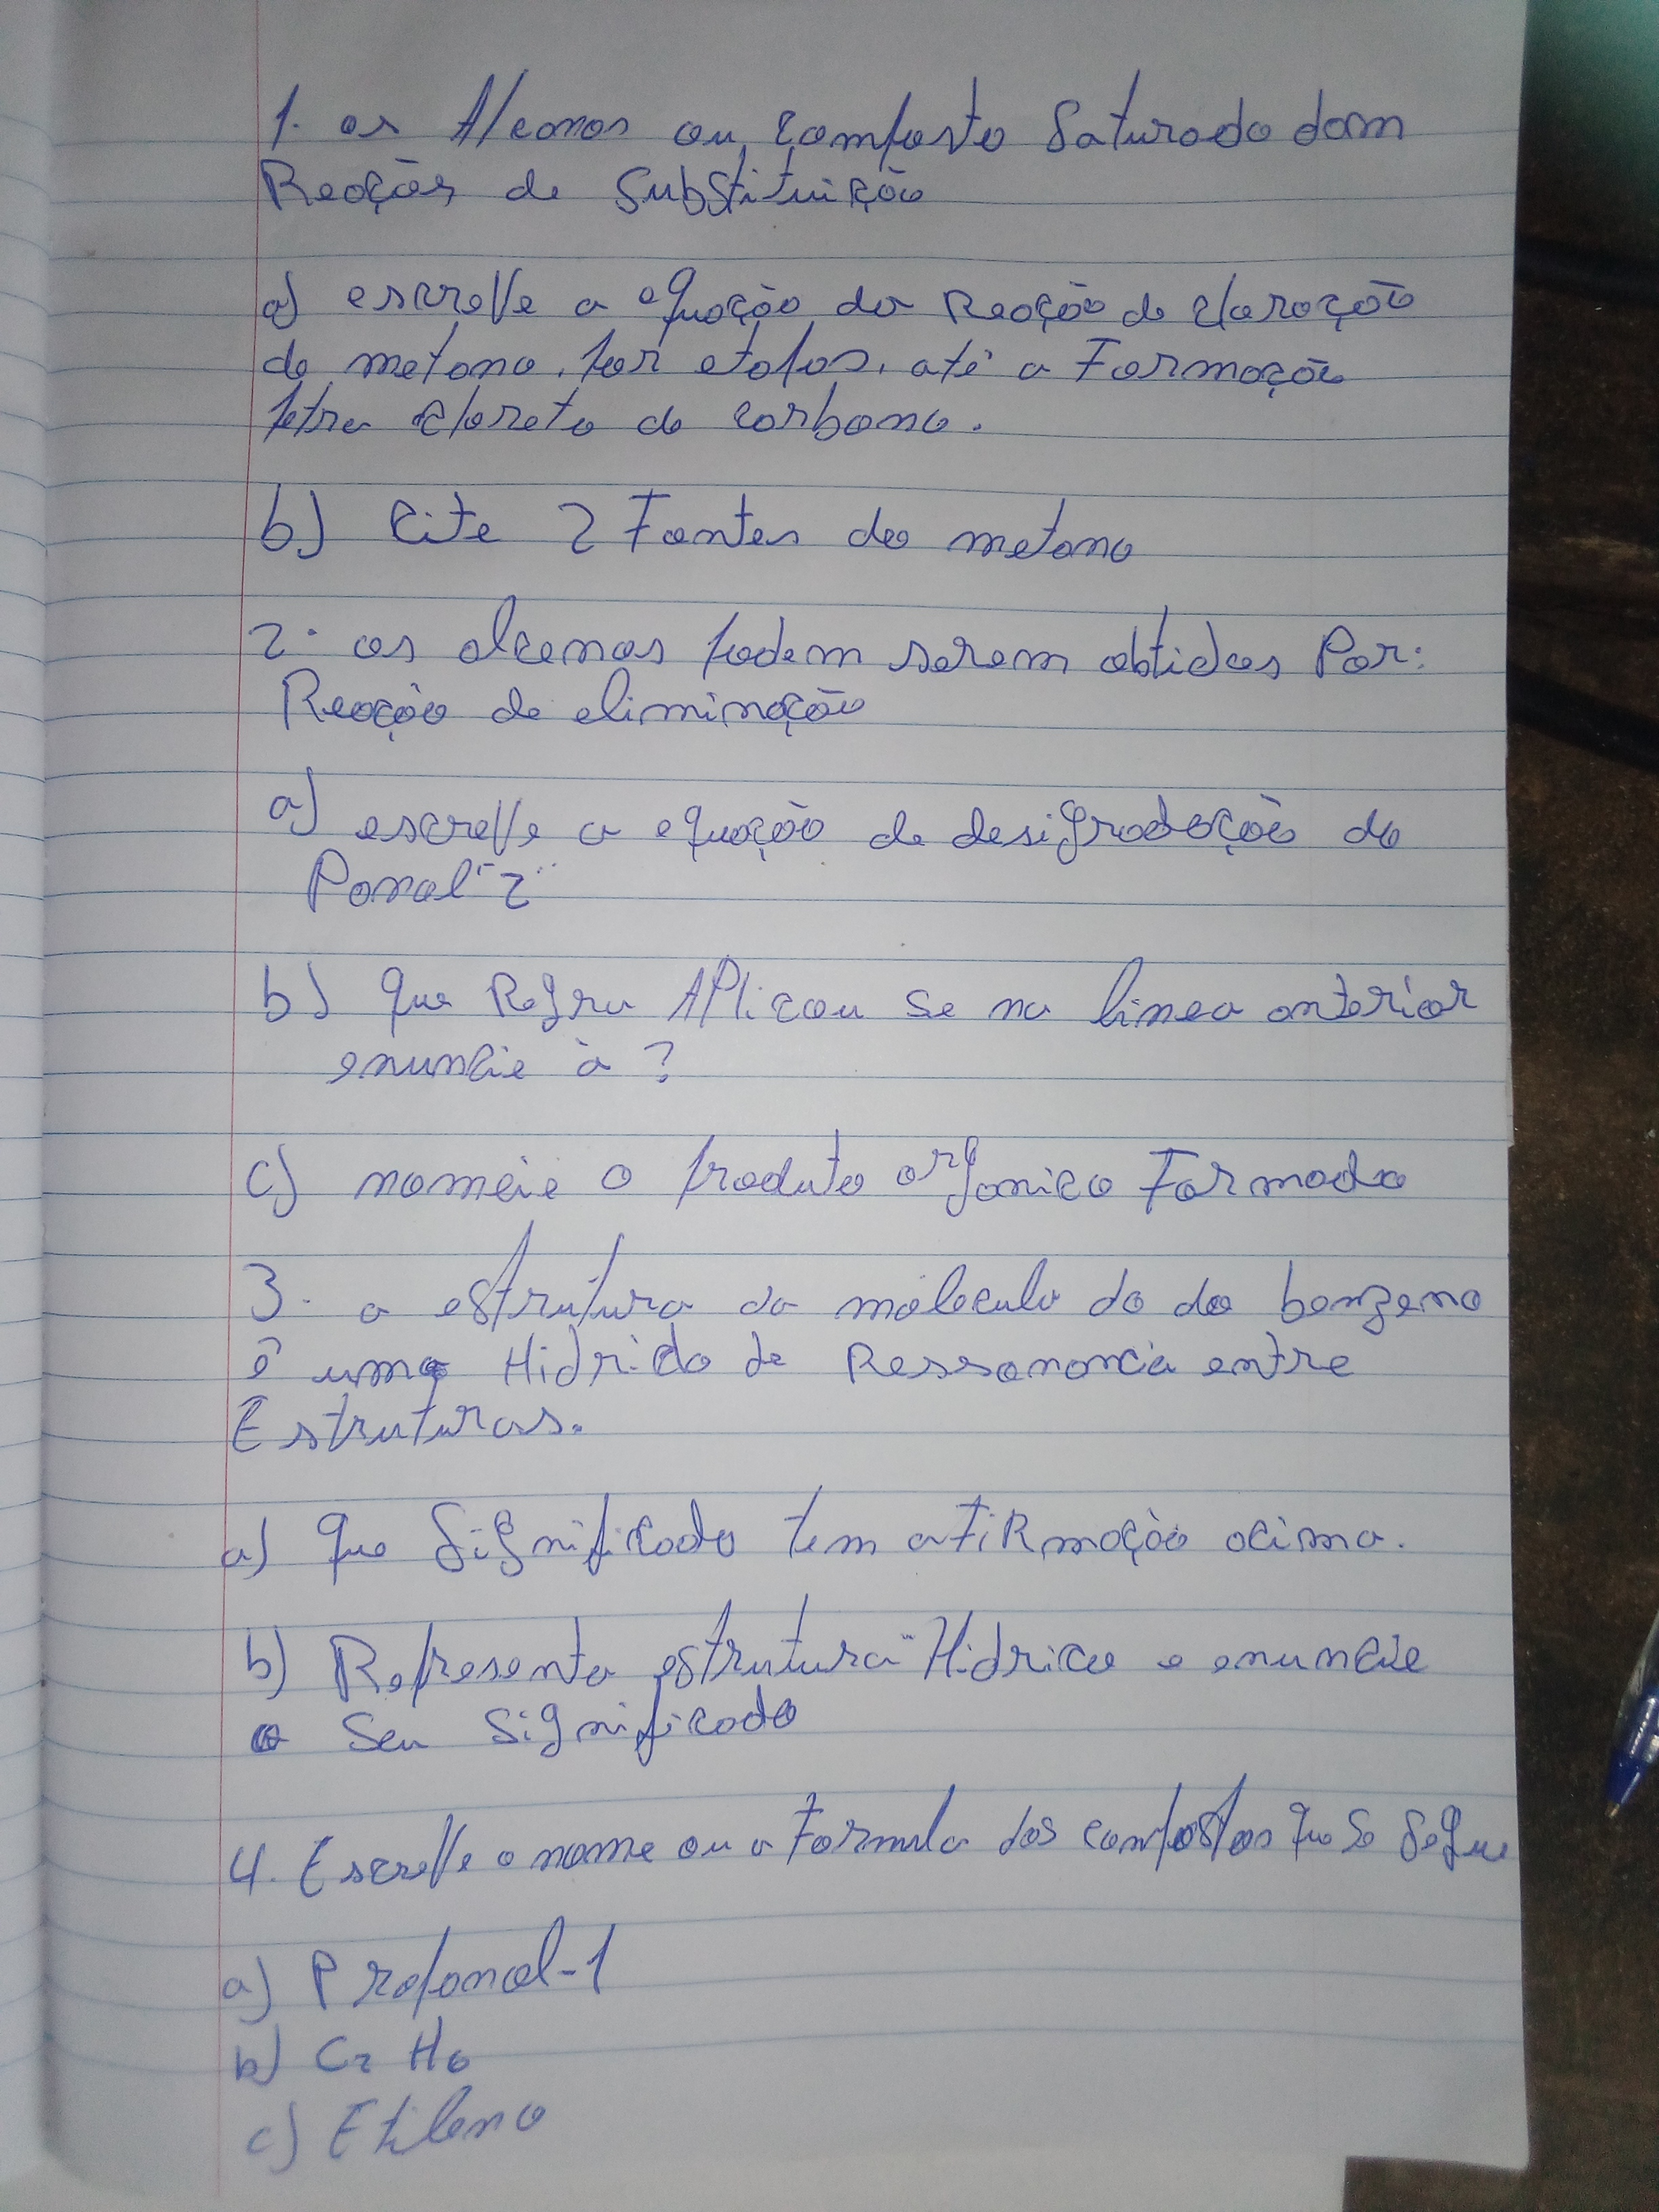 1. os Alcanos ou composto Saturado dam
Reações de Substituição
a) escreve a equação da Reação de cloração
do metano. por etapas. até a Formação
tetra cloreto de carbono.
b) Cite 2 Fontes do metano
2. os alcenos podem serem obtidos Por:
Reação de eliminação
a) escreve a equação de desigrodação do
Panol-2
b) que Regra APlicou se na linea anterior
enuncie à ?
c) nomeie o produto organico Formado
3. a estrutura da molecula do do benzeno
é uma Hidrido de Ressonancia entre
Estruturas.
a) que Significado tem afiRmação acima.
b) Representa estrutura Hidrica e enuncie
o Seu Significado
4. Escreve o nome ou a Formula dos compostos que se Segue
a) Propanol-1
b) C2 H6
c) Etileno